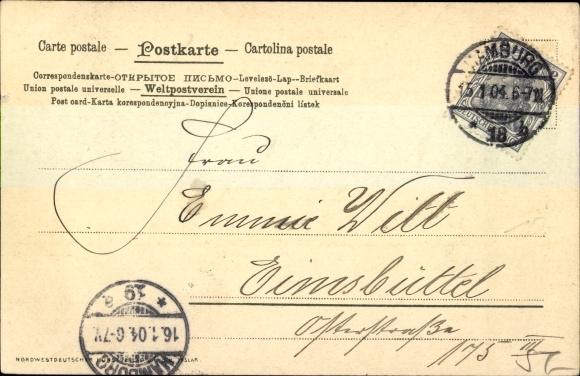 Carte postale — Postkarte — Cartolina postale
Correspondenzkarte-ОТКРЫТОЕ ПИСЬМО-Levelező-Lap--Briefkaart
Union postale universelle — Weltpostverein — Unione postale universale
Post card-Karta korespondencyjna-Dopisnice-Korespondenční lístek
HAMBURG
15.1.04.6-7N.
* 18
Frau
Emmie Witt
Eimsbüttel
Osterstraße
175 III
* 19 a.
16.1.04.6-7V.
HAMBURG
NORDWESTDEUTSCHER